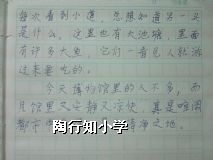 每次看到小道，总想知道另一头
是什么，这里也有大池塘，里面
有许多大鱼，它们一看见人就游
过来要吃的。
今天博物馆里的人不多，而
且馆里又安静又凉快，真是喧闹
都市
净之地。
陶行知小学